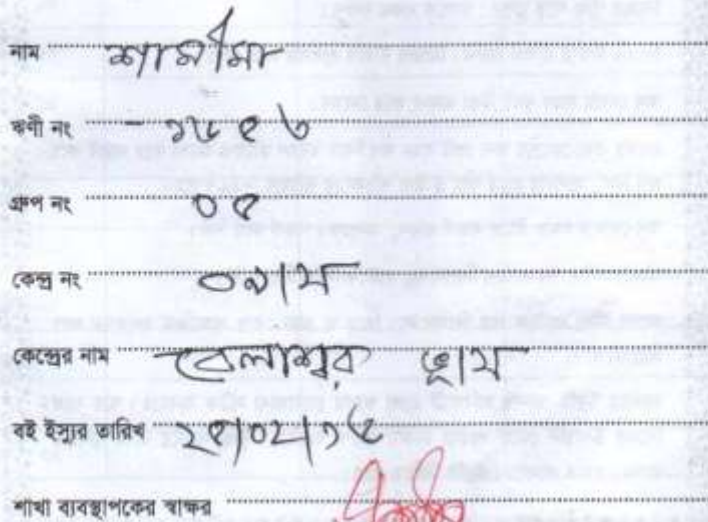 নাম শামীমা
ঋণী নং - ১৮৫৬
গ্রুপ নং ০৫
কেন্দ্র নং ০৯/ম
কেন্দ্রের নাম বেলাশ্বর
বই ইস্যুর তারিখ ২৫/০২/১৮
শাখা ব্যবস্থাপকের স্বাক্ষর